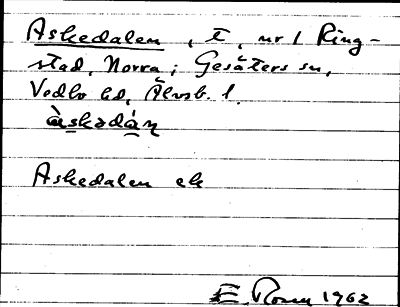 Askedalen, t, nr 1 Ring-
stad, Norra; Gesäters sn,
Vedbo hd, Älvsb. l.
àskədán
Askedalen ek
E. Rosen 1962